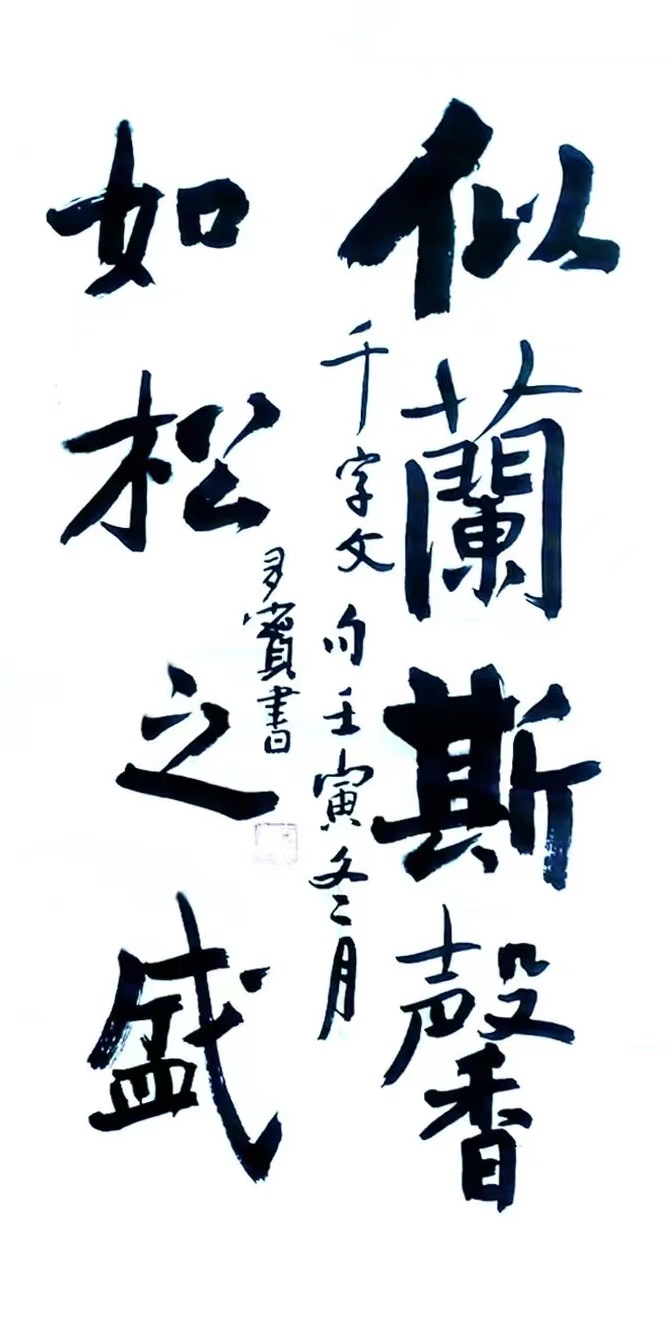 似蘭斯馨
千字文句壬寅冬月
多寶書
如松之盛